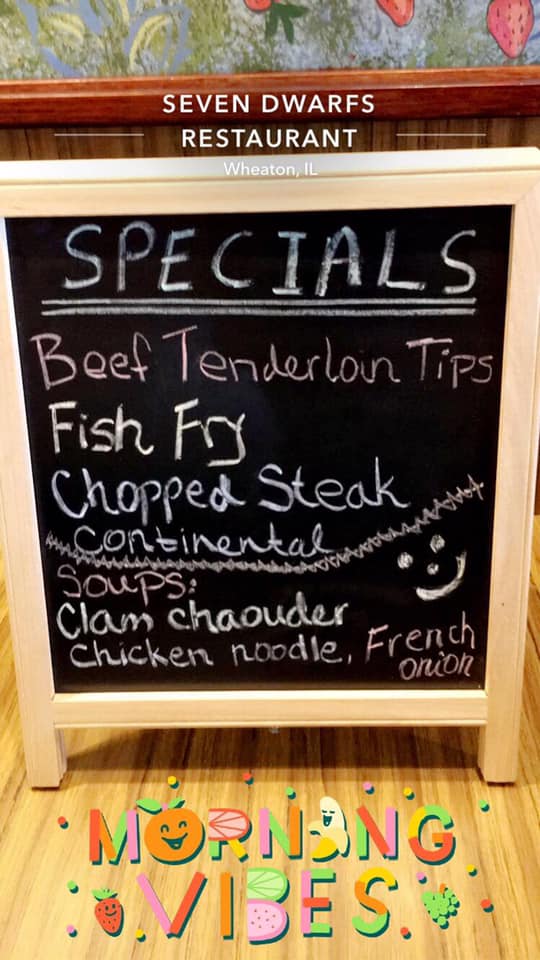 SEVEN DWARFS
RESTAURANT
Wheaton, IL
SPECIALS
Beef Tenderloin Tips
Fish Fry
Chopped Steak
Continental
Soups:
Clam chaouder
Chicken noodle, French
onion
MORNING
VIBES